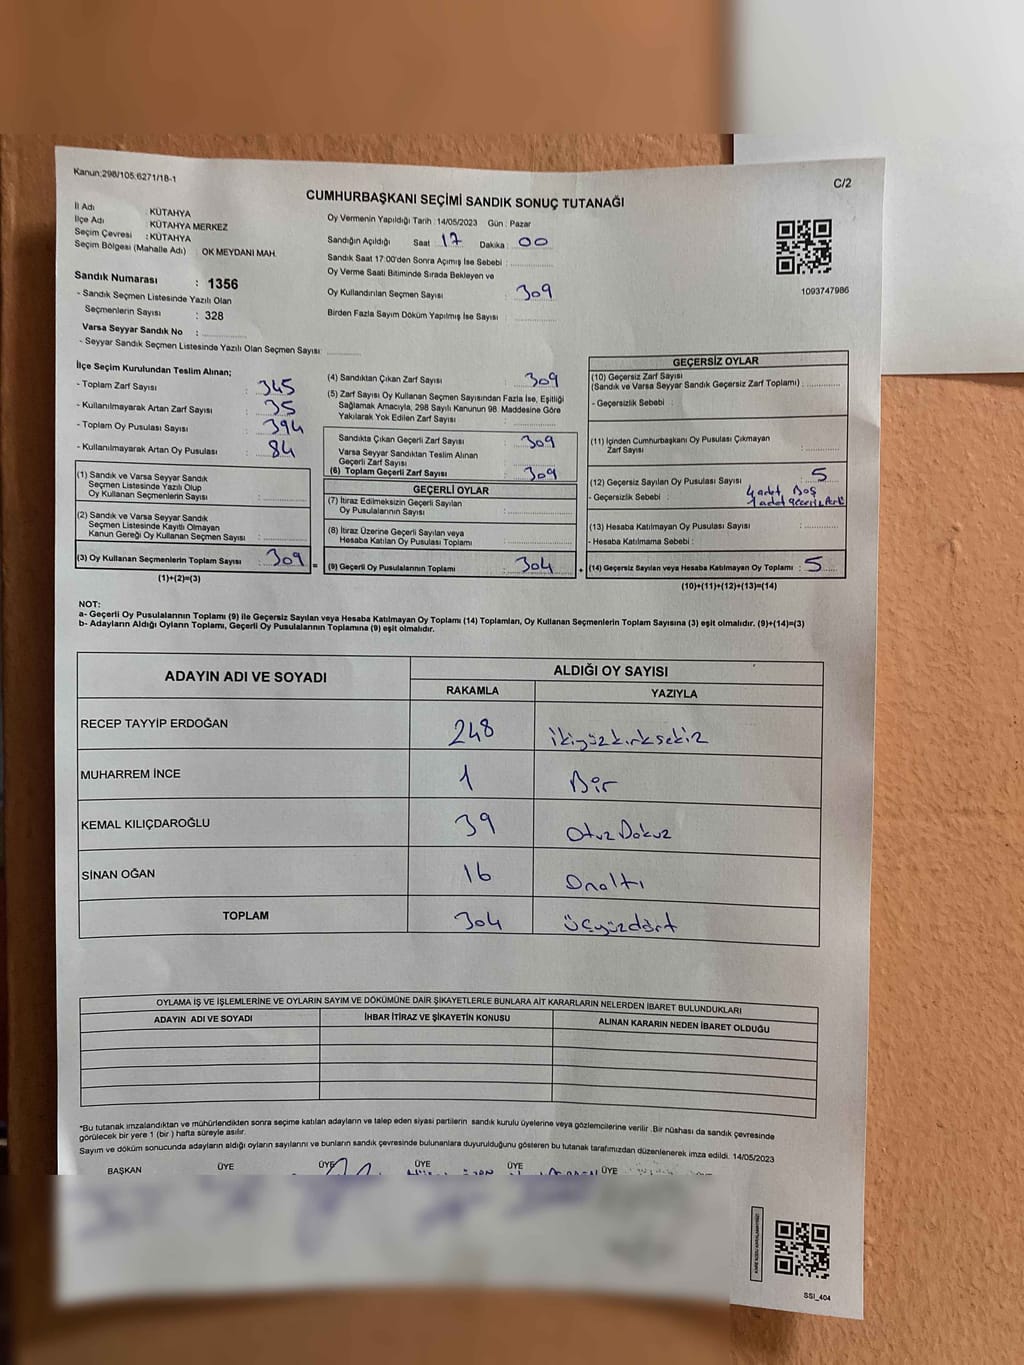 Kanun:298/105;6271/18-1
C/2
CUMHURBAŞKANI SEÇİMİ SANDIK SONUÇ TUTANAĞI
İl Adı : KÜTAHYA
İlçe Adı : KÜTAHYA MERKEZ
Seçim Çevresi : KÜTAHYA
Seçim Bölgesi (Mahalle Adı) OK MEYDANI MAH.
Sandık Numarası : 1356
- Sandık Seçmen Listesinde Yazılı Olan
Seçmenlerin Sayısı : 328
Varsa Seyyar Sandık No :
- Seyyar Sandık Seçmen Listesinde Yazılı Olan Seçmen Sayısı:
Oy Vermenin Yapıldığı Tarih : 14/05/2023 Gün : Pazar
Sandığın Açıldığı Saat 17 Dakika 00
Sandık Saat 17:00'den Sonra Açımış İse Sebebi :
Oy Verme Saati Bitiminde Sırada Bekleyen ve
Oy Kullandırılan Seçmen Sayısı : 309
Birden Fazla Sayım Döküm Yapılmış İse Sayısı :
1093747986
İlçe Seçim Kurulundan Teslim Alınan;
- Toplam Zarf Sayısı : 345
- Kullanılmayarak Artan Zarf Sayısı : 35
- Toplam Oy Pusulası Sayısı : 394
- Kullanılmayarak Artan Oy Pusulası : 84
(1) Sandık ve Varsa Seyyar Sandık
Seçmen Listesinde Yazılı Olup
Oy Kullanan Seçmenlerin Sayısı :
(2) Sandık ve Varsa Seyyar Sandık
Seçmen Listesinde Kayıtlı Olmayan
Kanun Gereği Oy Kullanan Seçmen Sayısı :
(3) Oy Kullanan Seçmenlerin Toplam Sayısı : 309
(1)+(2)=(3)
(4) Sandıktan Çıkan Zarf Sayısı : 309
(5) Zarf Sayısı Oy Kullanan Seçmen Sayısından Fazla İse, Eşitliği
Sağlamak Amacıyla, 298 Sayılı Kanunun 98. Maddesine Göre
Yakılarak Yok Edilen Zarf Sayısı :
Sandıkta Çıkan Geçerli Zarf Sayısı : 309
Varsa Seyyar Sandıktan Teslim Alınan
Geçerli Zarf Sayısı
(6) Toplam Geçerli Zarf Sayısı : 309
GEÇERLİ OYLAR
(7) İtiraz Edilmeksizin Geçerli Sayılan
Oy Pusulalarının Sayısı :
(8) İtiraz Üzerine Geçerli Sayılan veya
Hesaba Katılan Oy Pusulası Toplamı :
(9) Geçerli Oy Pusulalarının Toplamı : 304
GEÇERSİZ OYLAR
(10) Geçersiz Zarf Sayısı
(Sandık ve Varsa Seyyar Sandık Geçersiz Zarf Toplamı) :
- Geçersizlik Sebebi :
(11) İçinden Cumhurbaşkanı Oy Pusulası Çıkmayan
Zarf Sayısı :
(12) Geçersiz Sayılan Oy Pusulası Sayısı : 5
- Geçersizlik Sebebi : 4 adet Boş
1 adet
(13) Hesaba Katılmayan Oy Pusulası Sayısı :
- Hesaba Katılmama Sebebi :
(14) Geçersiz Sayılan veya Hesaba Katılmayan Oy Toplamı : 5
(10)+(11)+(12)+(13)=(14)
NOT:
a- Geçerli Oy Pusulalarının Toplamı (9) ile Geçersiz Sayılan veya Hesaba Katılmayan Oy Toplamı (14) Toplamları, Oy Kullanan Seçmenlerin Toplam Sayısına (3) eşit olmalıdır. (9)+(14)=(3)
b- Adayların Aldığı Oyların Toplamı, Geçerli Oy Pusulalarının Toplamına (9) eşit olmalıdır.
ADAYIN ADI VE SOYADI
ALDIĞI OY SAYISI
RAKAMLA YAZIYLA
RECEP TAYYİP ERDOĞAN 248 ikiyüzkırksekiz
MUHARREM İNCE 1 Bir
KEMAL KILIÇDAROĞLU 39 Otuz Dokuz
SİNAN OĞAN 16 Onaltı
TOPLAM 304 Üçyüzdört
OYLAMA İŞ VE İŞLEMLERİNE VE OYLARIN SAYIM VE DÖKÜMÜNE DAİR ŞİKAYETLERLE BUNLARA AİT KARARLARIN NELERDEN İBARET BULUNDUKLARI
ADAYIN ADI VE SOYADI İHBAR İTİRAZ VE ŞİKAYETİN KONUSU ALINAN KARARIN NEDEN İBARET OLDUĞU
*Bu tutanak imzalandıktan ve mühürlendikten sonra seçime katılan adayların ve talep eden siyasi partilerin sandık kurulu üyelerine veya gözlemcilerine verilir. Bir nüshası da sandık çevresinde
görülecek bir yere 1 (bir ) hafta süreyle asılır.
Sayım ve döküm sonucunda adayların aldığı oyların sayılarını ve bunların sandık çevresinde bulunanlara duyurulduğunu gösteren bu tutanak tarafımızdan düzenlenerek imza edildi. 14/05/2023
BAŞKAN ÜYE ÜYE ÜYE ÜYE ÜYE
SSI_404